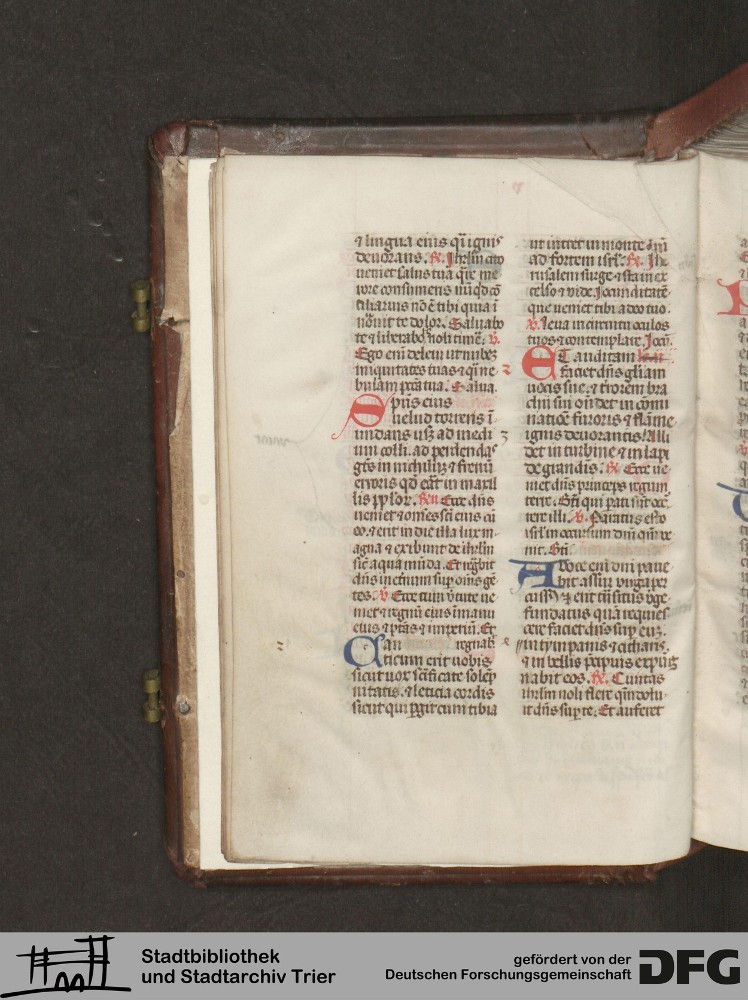 ⁊ lingua eius qͣi ignis
deuorans. ℟. Jhrl̄m cito
ueniet salus tua qͣre me
rore consumeris nūqͥd cō
siliarius nō ē tibi quia i
nouit te dolor. Saluabo
te ⁊ liberabo noli timē. ℣.
Ego enī deleui ut nubē
iniquitates tuas ⁊ qͣi ne
bulam pctā tua. Salua.
Spūs eius
uelud torrens ī
undans usqꝫ ad medi
um colli. ad perdendas
gētes in nichilū ⁊ frenū
erroris qd erāt in maxil
lis pplo℞. ℟m Ecce dn̄s
ueniet ⁊ om̄es sci eius cū
eo. ⁊ erit in die illa lux m
agna ⁊ exibunt de ihrlm
sic aqua mūda. Et regbit
dn̄s in et̄num suꝑ om̄s gē
tes. ℣ Ecce cum ūtute ue
niet ⁊ regnū eius ī manu
eius ⁊ ptas ⁊ imperiū. Et
Can regnab
ticum erit uobis
sicut uox scificate solēp
nitatis. ⁊ leticia cordis
sicut qui ꝑgit cum tibia
ut intret in monte dn̄i
ad fortem isrl. ℟. Jhe
rusalem surge ⁊ sta in ex
celso ⁊ vide. Jocunditatē
que ueniet tibi a deo tuo.
℣. Leua in circuitu oculos
tuos ⁊ contemplare. Jocū.
ET auditam
faciet dn̄s gliam
uocis sue. ⁊ t̄rorem bra
chii sui on̄det in cōmi
natiōe furoris ⁊ flāme
ignis deuorantis. Alli
det in turbine ⁊ in lapi
de grandis. ℟. Ecce ue
niet dn̄s princeps regum
terre. Bti qui pati sūt oc
rere illi. ℣. Paratus esto
isrl in occursum dn̄i qm̄ ve
nit. Bti
A Voce enī dn̄i paue
bit assur uirga per
cuss⁹ ⁊ erit trāsitus uirge
fundatus quā requies
cere faciet dn̄s suꝑ eū.
in tympanis ⁊ citharis.
⁊ in bellis p̄cipuis expug
nabit eos. ℟. Ciuitas
ihrlm noli flere qm̄ dolu
it dn̄s suꝑ te. Et auferet
Stadtbibliothek
und Stadtarchiv Trier
gefördert von der
Deutschen Forschungsgemeinschaft
DFG